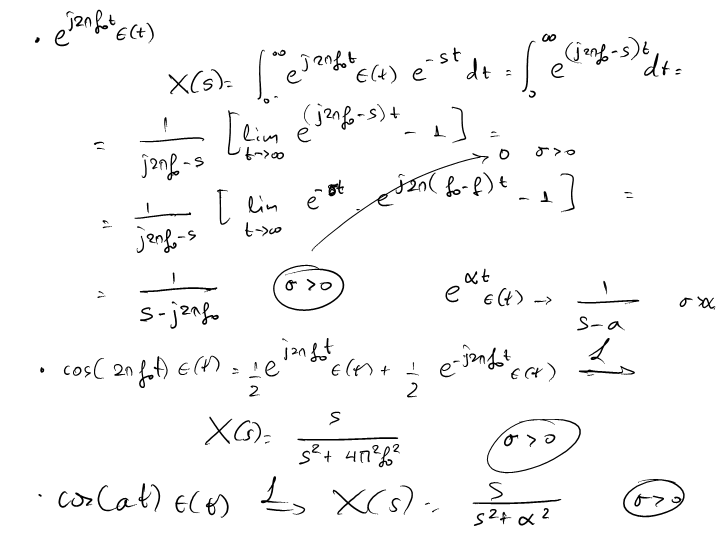 • e^{j2πf₀t} ε(t)
X(s) = ∫_{0⁻}^{∞} e^{j2πf₀t} ε(t) e^{-st} dt = ∫_{0}^{∞} e^{(j2πf₀-s)t} dt =
= 1/(j2πf₀-s) [ lim_{t->∞} e^{(j2πf₀-s)t} - 1 ] =
→ 0 σ>0
= 1/(j2πf₀-s) [ lim_{t->∞} e^{-σt} · e^{j2π(f₀-f)t} - 1 ] =
= 1/(s-j2πf₀) σ>0 e^{αt} ε(t) → 1/(s-a) σ>α
• cos(2πf₀t) ε(t) = 1/2 e^{j2πf₀t} ε(t) + 1/2 e^{-j2πf₀t} ε(t) ℒ⇒
X(s) = s/(s²+4π²f₀²) σ>0
• cos(at) ε(t) ℒ⇒ X(s) = s/(s²+α²) σ>0